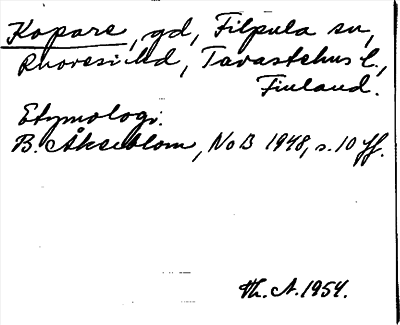 Kopare, gd, Filpula sn,
Ruovesi hd, Tavastehus l.,
Finland.
Etymologi.
B. Åkerblom, NoB 1948, s. 10 ff.
Th. A. 1954.